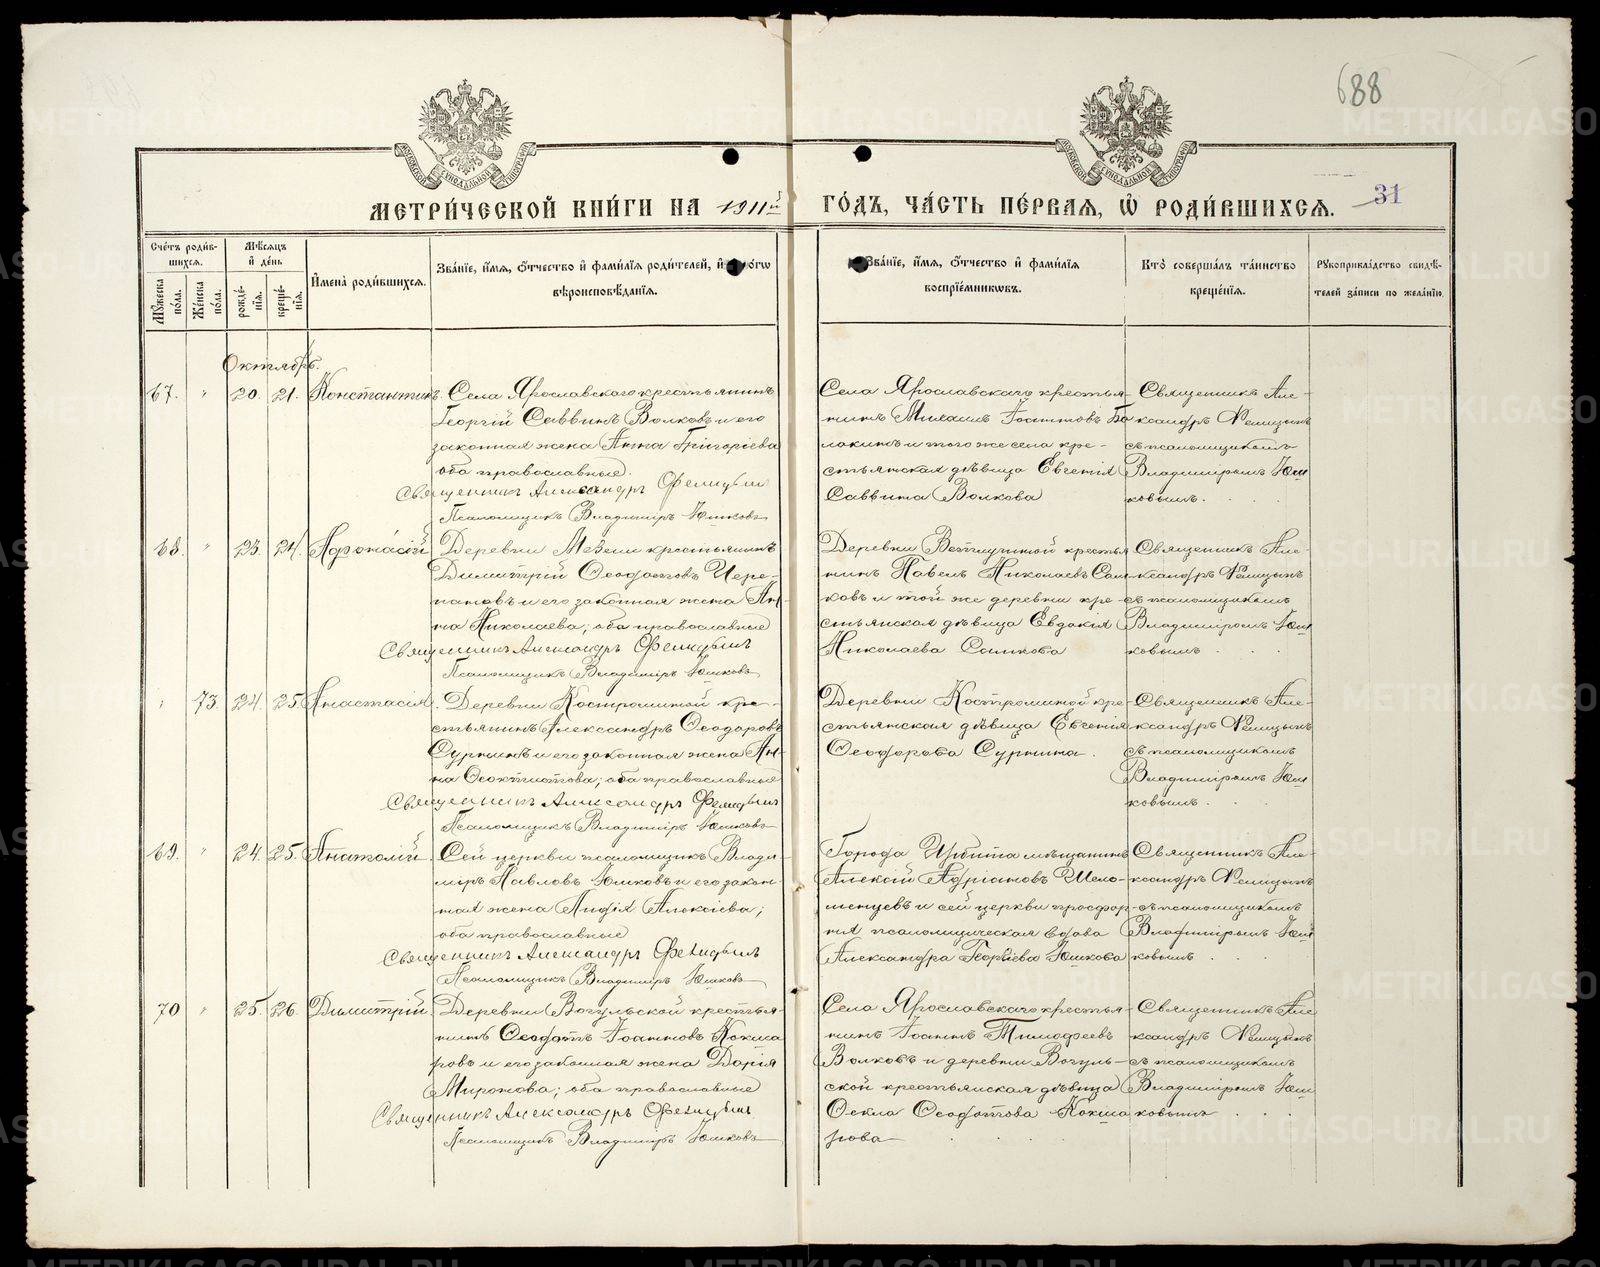 688
МЕТРИ́ЧЕСКОЙ КНИ́ГИ НА 1911й ГО́ДЪ, ЧА́СТЬ ПЕ́РВАЯ, Ѡ РОДИ́ВШИХСЯ. 31
Сче́тъ роди́вшихся.
Му́жеска по́ла.
Же́нска по́ла.
Мѣ́сяцъ и де́нь
рожде́нїя.
креще́нїя.
И҆мена̀ роди́вшихся.
Зва́нїе, и҆́мя, ѻ҆́тчество и҆ фами́лїя роди́телей, и҆
вѣроисповѣ́данїя.
Зва́нїе, и҆́мя, ѻ҆́тчество и҆ фами́лїя
воспрїе́мникѡвъ.
Кто̀ соверша́лъ та́инство
креще́нїя.
Рукоприкла́дство свидѣ́-
телей за́писи по жела́нїю.
Октябрь.
67. " 20. 21. Константинъ
Села Ярославскаго крестьянинъ
Георгій Саввинъ Волковъ и его
законная жена Анна Григоріева
оба православные.
Священникъ Александръ
Псаломщикъ Владиміръ Юшковъ
Села Ярославскаго крестья-
нинъ Михаилъ Іоанновъ Ба
лакинъ и того же села кре-
стьянская дѣвица Евгенія
Саввина Волкова
Священникъ Але-
ксандръ
съ псаломщикомъ
Владиміромъ Юш
ковымъ.
68. " 23. 24. Афонасій
Деревни Мезени крестьянинъ
Димитрій Ѳеодотовъ Чере-
пановъ и его законная жена Ан-
на Николаева; оба православные
Священникъ Александръ
Псаломщикъ Владиміръ Юшковъ
Деревни крестья
нинъ Павелъ Николаевъ Сал
ковъ и той же деревни кре-
стьянская дѣвица Евдокія
Николаева
Священникъ Але-
ксандръ
съ псаломщикомъ
Владиміромъ Юш
ковымъ
" 73. 24. 25. Анастасія.
Деревни Костроминой кре-
стьянинъ Александръ Ѳеодоровъ
Сурнинъ и его законная жена Ан-
на Ѳеоктистова; оба православные
Священникъ Александръ
Псаломщикъ Владиміръ Юшковъ
Деревни Костроминой кре-
стьянская дѣвица Евгенія
Ѳеодорова Сурнина.
Священникъ Але-
ксандръ
съ псаломщикомъ
Владиміромъ Юш
ковымъ.
69. " 24. 25. Анатолій.
Сей церкви псаломщикъ Влади-
міръ Павловъ Юшковъ и его закон-
ная жена Лидія Алексіева;
оба православные
Священникъ Александръ
Псаломщикъ Владиміръ Юшковъ
Города Ирбита мѣщанинъ
Алексій Адріановъ Шело-
менцевъ и сей церкви просфор-
ня псаломщическая вдова
Александра Георгіева Юшкова
Священникъ Але-
ксандръ
съ псаломщикомъ
Владиміромъ Юш
ковымъ
70 " 25. 26. Димитрій.
Деревни Вогульской крестья-
нинъ Ѳеодотъ Іоанновъ Кокша
ровъ и его законная жена Дарія
Миронова; оба православные
Священникъ Александръ
Псаломщикъ Владиміръ Юшковъ
Села Ярославскаго крестья-
нинъ Іоаннъ Тимофеевъ
Волковъ и деревни Вогуль-
ской крестьянская дѣвица
Ѳекла Ѳеодотова Кокша
рова
Священникъ Але
ксандръ
съ псаломщикомъ
Владиміромъ Юш
ковымъ
METRIKI.GASO-URAL.RU